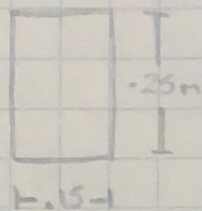 .25m
.15